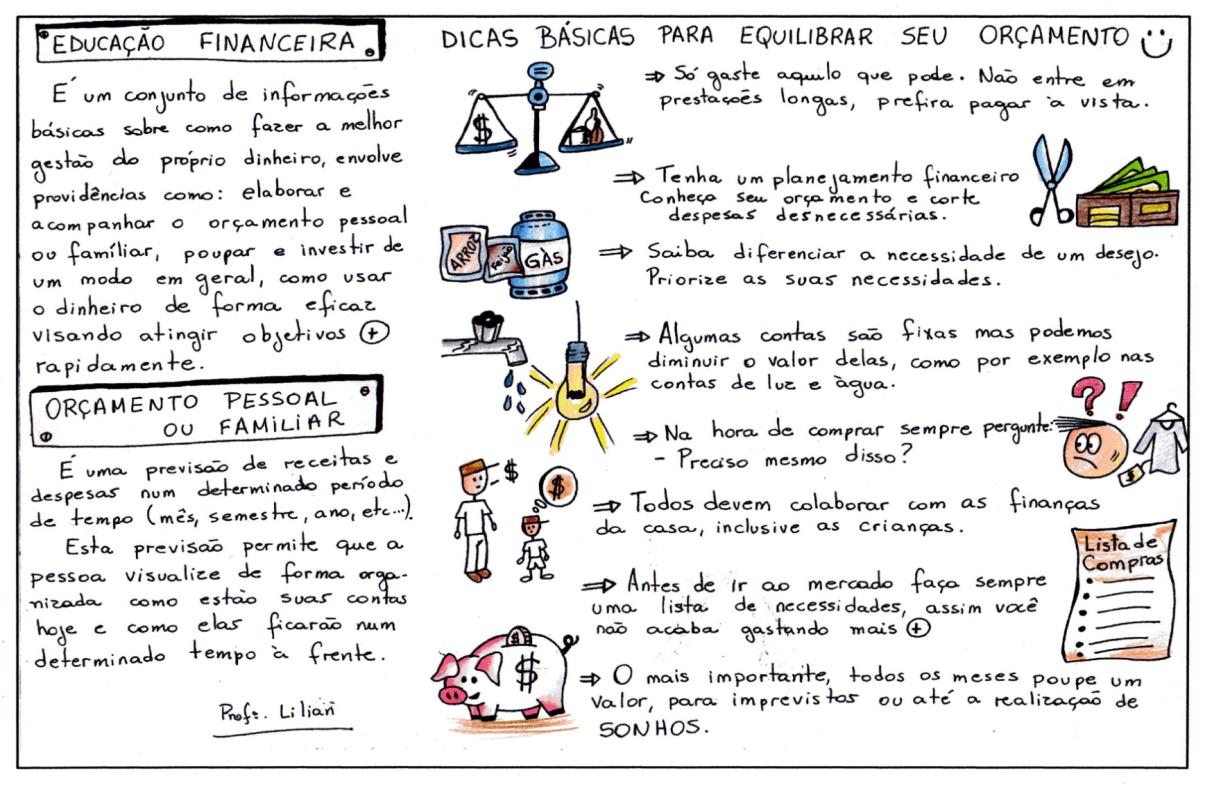 EDUCAÇÃO FINANCEIRA
É um conjunto de informações
básicas sobre como fazer a melhor
gestão do próprio dinheiro, envolve
providências como: elaborar e
acompanhar o orçamento pessoal
ou famíliar, poupar e investir de
um modo em geral, como usar
o dinheiro de forma eficaz
visando atingir objetivos +
rapidamente.
ORÇAMENTO PESSOAL
OU FAMILIAR
É uma previsão de receitas e
despesas num determinado período
de tempo (mês, semestre, ano, etc...).
Esta previsão permite que a
pessoa visualize de forma orga-
nizada como estão suas contas
hoje e como elas ficarão num
determinado tempo à frente.
Profª. Lilian
DICAS BÁSICAS PARA EQUILIBRAR SEU ORÇAMENTO
$
⇒ Só gaste aquilo que pode. Não entre em
prestações longas, prefira pagar à vista.
⇒ Tenha um planejamento financeiro
Conheça seu orçamento e corte
despesas desnecessárias.
ARROZ
Feijão
GÀS
⇒ Saiba diferenciar a necessidade de um desejo.
Priorize as suas necessidades.
⇒ Algumas contas são fixas mas podemos
diminuir o valor delas, como por exemplo nas
contas de luz e àgua.
?!
⇒ Na hora de comprar sempre pergunte:
- Preciso mesmo disso?
$
$
$
⇒ Todos devem colaborar com as finanças
da casa, inclusive as crianças.
Lista de
Compras
⇒ Antes de ir ao mercado faça sempre
uma lista de necessidades, assim você
não acaba gastando mais +
$
$
⇒ O mais importante, todos os meses poupe um
valor, para imprevistos ou até a realização de
SONHOS.